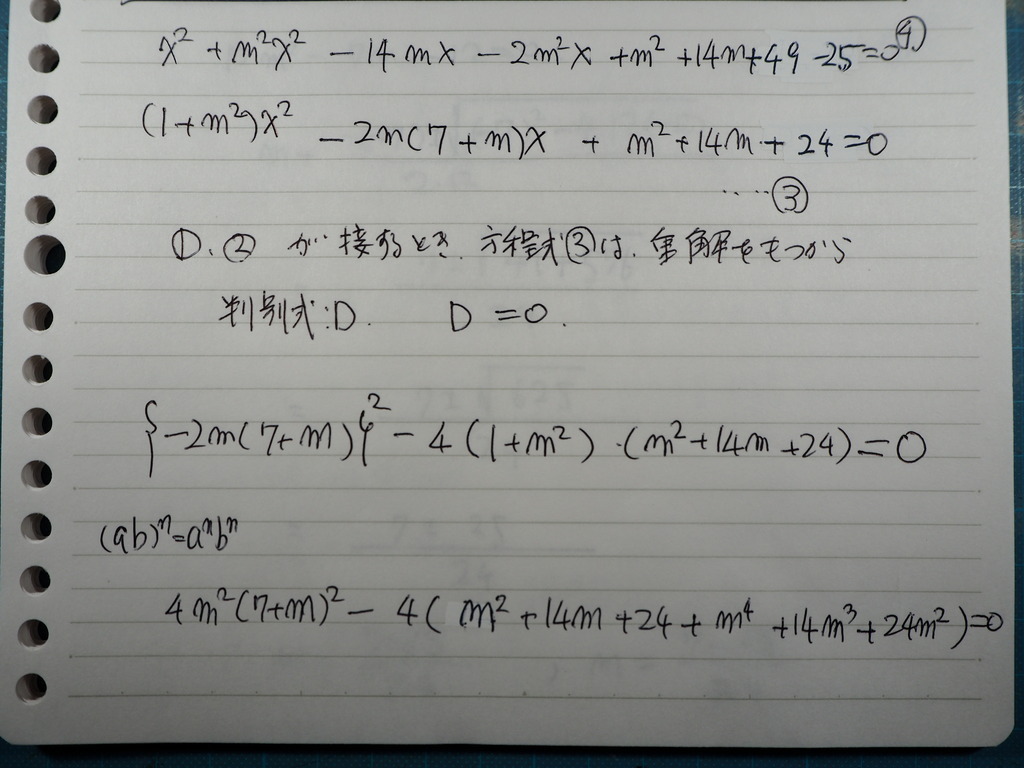 x² + m²x² - 14mx - 2m²x + m² + 14m + 49 - 25 = 0 ④
(1+m²)x² - 2m(7+m)x + m² + 14m + 24 = 0
‥‥③
①、②が接するとき、方程式③は、重解をもつから
判別式:D. D = 0.
{-2m(7+m)}² - 4(1+m²)・(m²+14m+24) = 0
(ab)ⁿ=aⁿbⁿ
4m²(7+m)² - 4(m² + 14m + 24 + m⁴ + 14m³ + 24m²) = 0